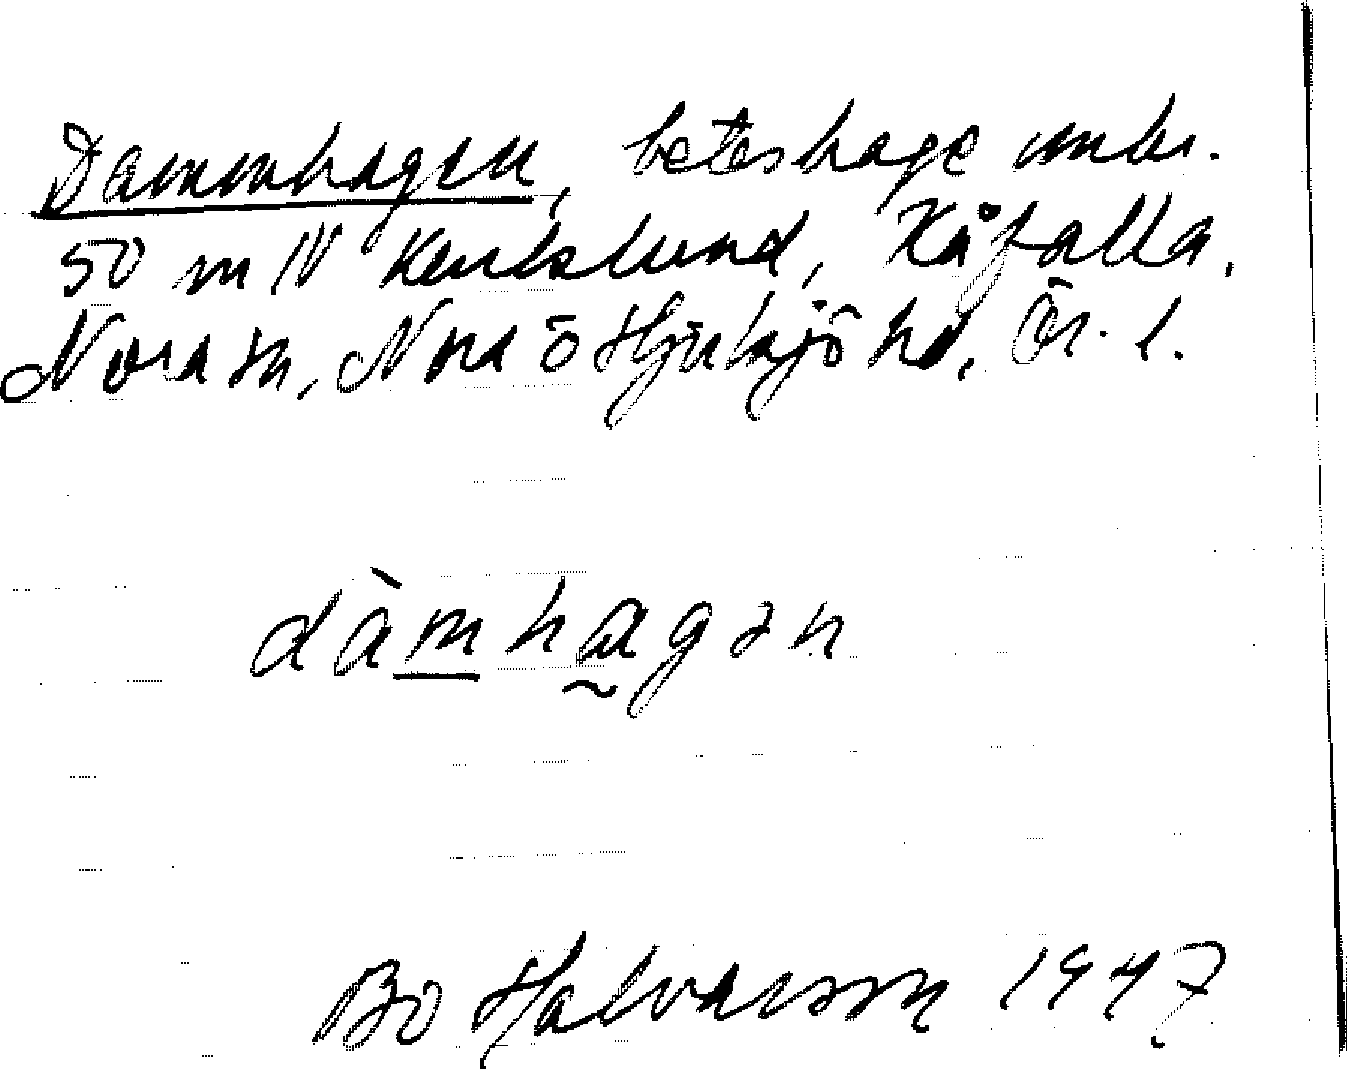 Dammhagen, beteshage omkr.
50 m N Karlslund, Kåfalla,
Nora sn, Nora ö Hjulsjö hd, Ör. l.
dàmhagən
Bo Halvarsson 1947